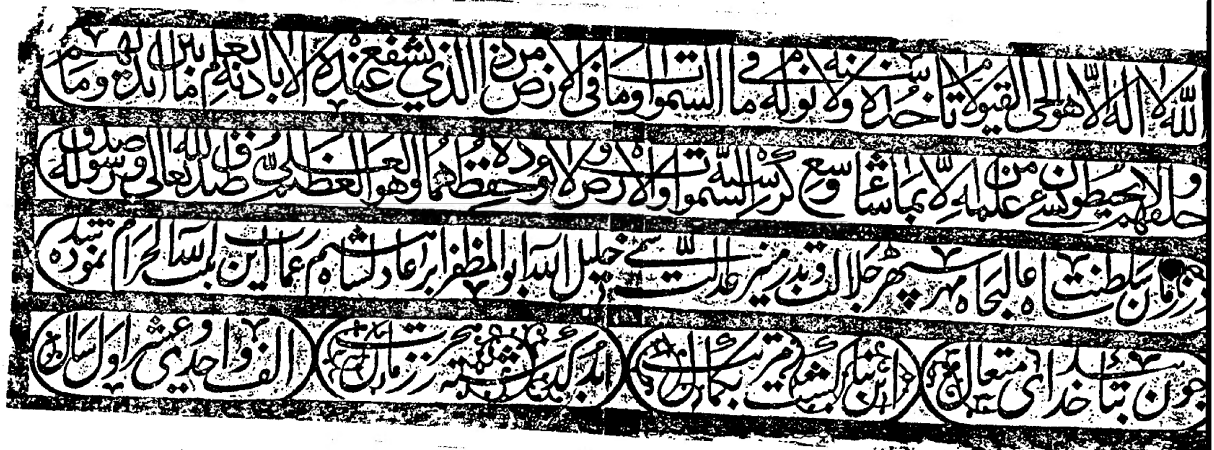 الله لا اله الا هو الحي القيوم لا تاخذه سنة ولا نوم له ما في السموات وما في الارض من ذا الذي يشفع عنده الا باذنه يعلم ما بين ايديهم وما
خلفهم ولا يحيطون بشيء من علمه الا بما شاء وسع كرسيه السموات والارض ولا يؤده حفظهما وهو العلي العظيم صدق الله تعالى وصدق رسوله
در زمان سلطنت شاه عاليجاه مهر سپهر جلالت و بدر منير عدالت سمي خليل الله ابو المظفر ابراهيم عادلشاه عمارت اين بيت الله الحرام نموده شد
چون بتائيد خداى متعال
اين بنا گشت قريب بكمال
ز هجرت
الف و احدى و عشر اول سال